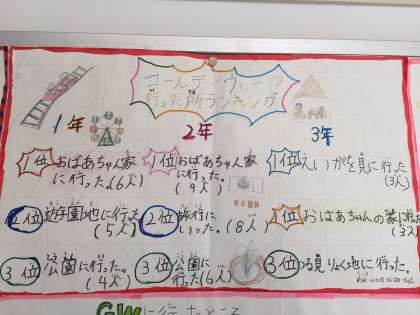 ゴールデンウィーク
行った所ランキング
1年
1位 おばあちゃん家
に行った(6人)
2位 遊園地に行った
(5人)
3位 公園に行った。
(4人)
2年
1位 おばあちゃん家
に行った。
(9人)
2位 旅行に
いった。(8人)
3位 公園に
行った(6人)
3年
1位 えいがを見に行った
(3人)
1位 おばあちゃんの家に行った
(3人
3位 つる見りょく地に行った。
GWに行ったところ